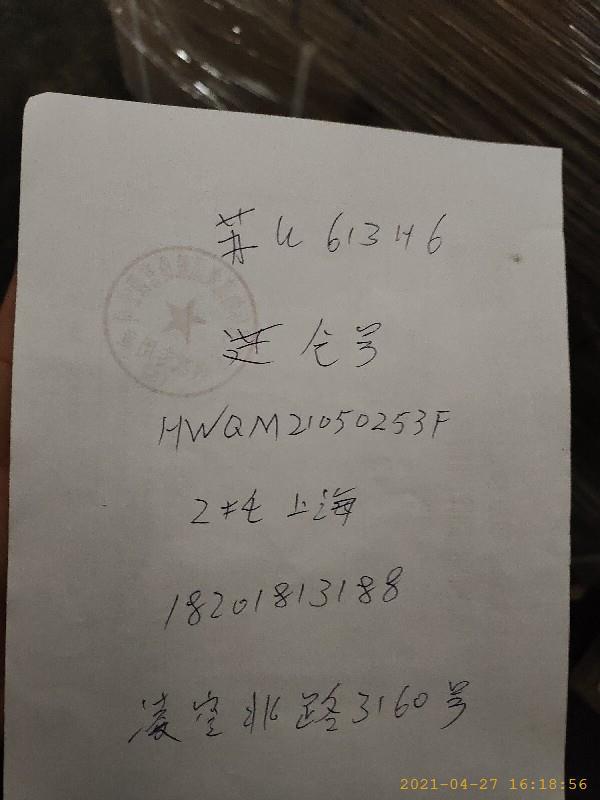 苏U613H6
进仓号
HWQM21050253F
2#仓 上海
18201813188
凌空北路3160号
2021-04-27 16:18:56